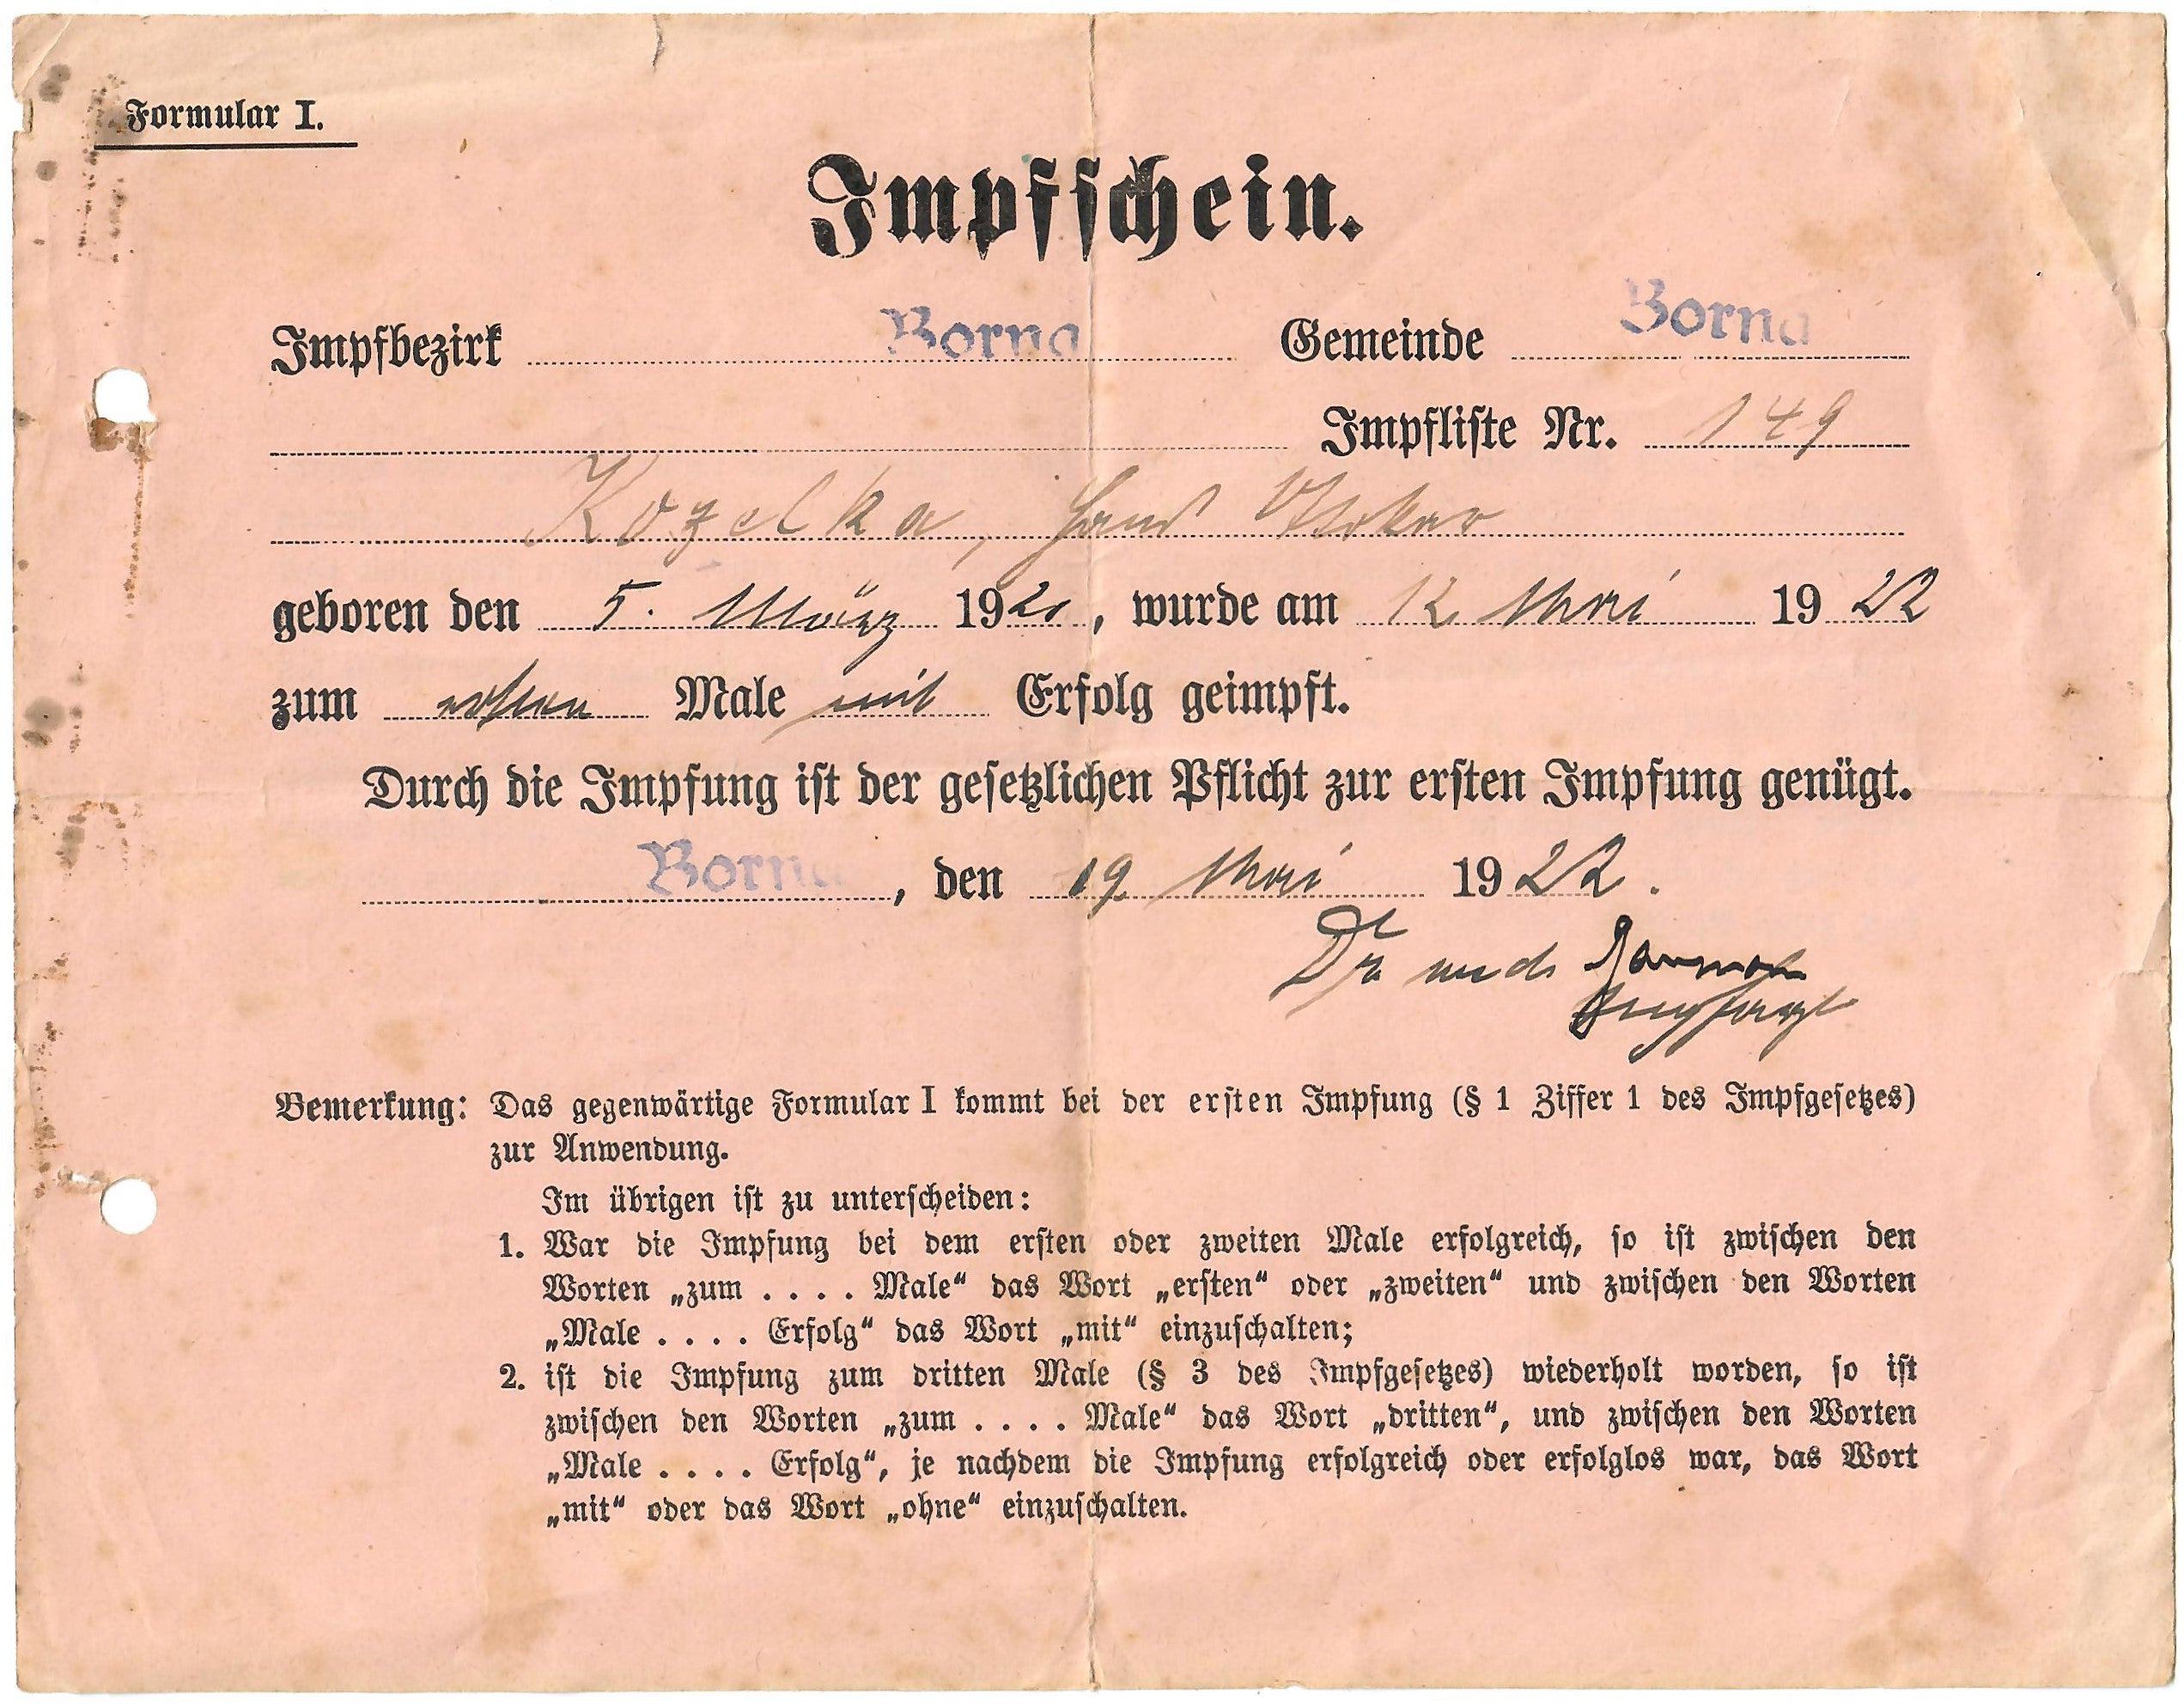 Formular I.
Impfschein.
Impfbezirk Borna Gemeinde Borna
Impfliste Nr. 149
Kozelka, Hans Oskar
geboren den 5. März 192 , wurde am 12. Mai 1922
zum ersten Male mit Erfolg geimpft.
Durch die Impfung ist der gesetzlichen Pflicht zur ersten Impfung genügt.
Borna, den 19. Mai 1922.
Dr med.
Impfarzt
Bemerkung: Das gegenwärtige Formular I kommt bei der ersten Impfung (§ 1 Ziffer 1 des Impfgesetzes)
zur Anwendung.
Im übrigen ist zu unterscheiden:
1. War die Impfung bei dem ersten oder zweiten Male erfolgreich, so ist zwischen den
Worten „zum . . . . Male“ das Wort „ersten“ oder „zweiten“ und zwischen den Worten
„Male . . . . Erfolg“ das Wort „mit“ einzuschalten;
2. ist die Impfung zum dritten Male (§ 3 des Impfgesetzes) wiederholt worden, so ist
zwischen den Worten „zum . . . . Male“ das Wort „dritten“, und zwischen den Worten
„Male . . . . Erfolg“, je nachdem die Impfung erfolgreich oder erfolglos war, das Wort
„mit“ oder das Wort „ohne“ einzuschalten.